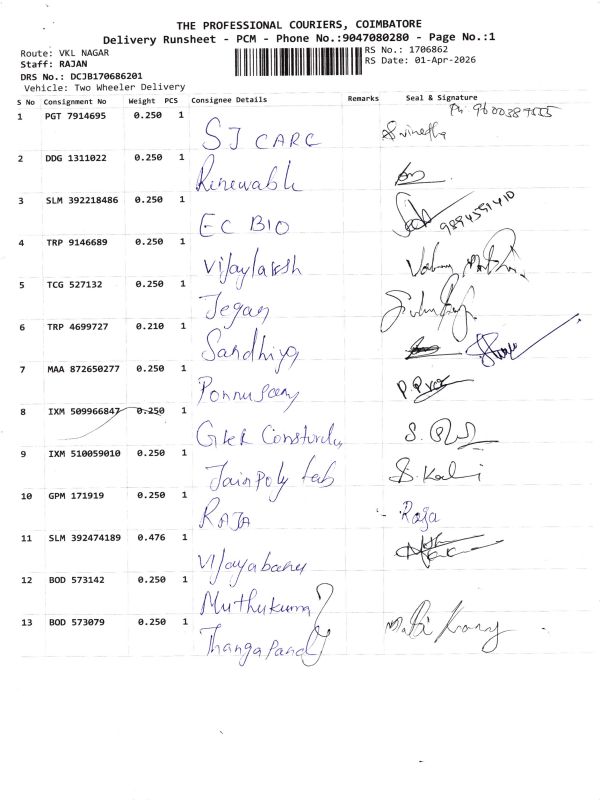 THE PROFESSIONAL COURIERS, COIMBATORE
Delivery Runsheet - PCM - Phone No.:9047080280 - Page No.:1
Route: VKL NAGAR RS No.: 1706862
Staff: RAJAN RS Date: 01-Apr-2026
DRS No.: DCJB170686201
Vehicle: Two Wheeler Delivery
S No Consignment No Weight PCS Consignee Details Remarks Seal & Signature
1 PGT 7914695 0.250 1
SJ CARC Srinetha
2 DDG 1311022 0.250 1
Renewable
3 SLM 392218486 0.250 1
EC BIO 9894551410
4 TRP 9146689 0.250 1
Vijaylaksh
5 TCG 527132 0.250 1
Jegan
6 TRP 4699727 0.210 1
Sandhiya
7 MAA 872650277 0.250 1
Ponnusamy
8 IXM 509966847 0.250 1
9 IXM 510059010 0.250 1
Jainpoly tab S. Kali
10 GPM 171919 0.250 1
RAJA Raja
11 SLM 392474189 0.476 1
Vijayabanu
12 BOD 573142 0.250 1
Muthukuma
13 BOD 573079 0.250 1
Thangapandy